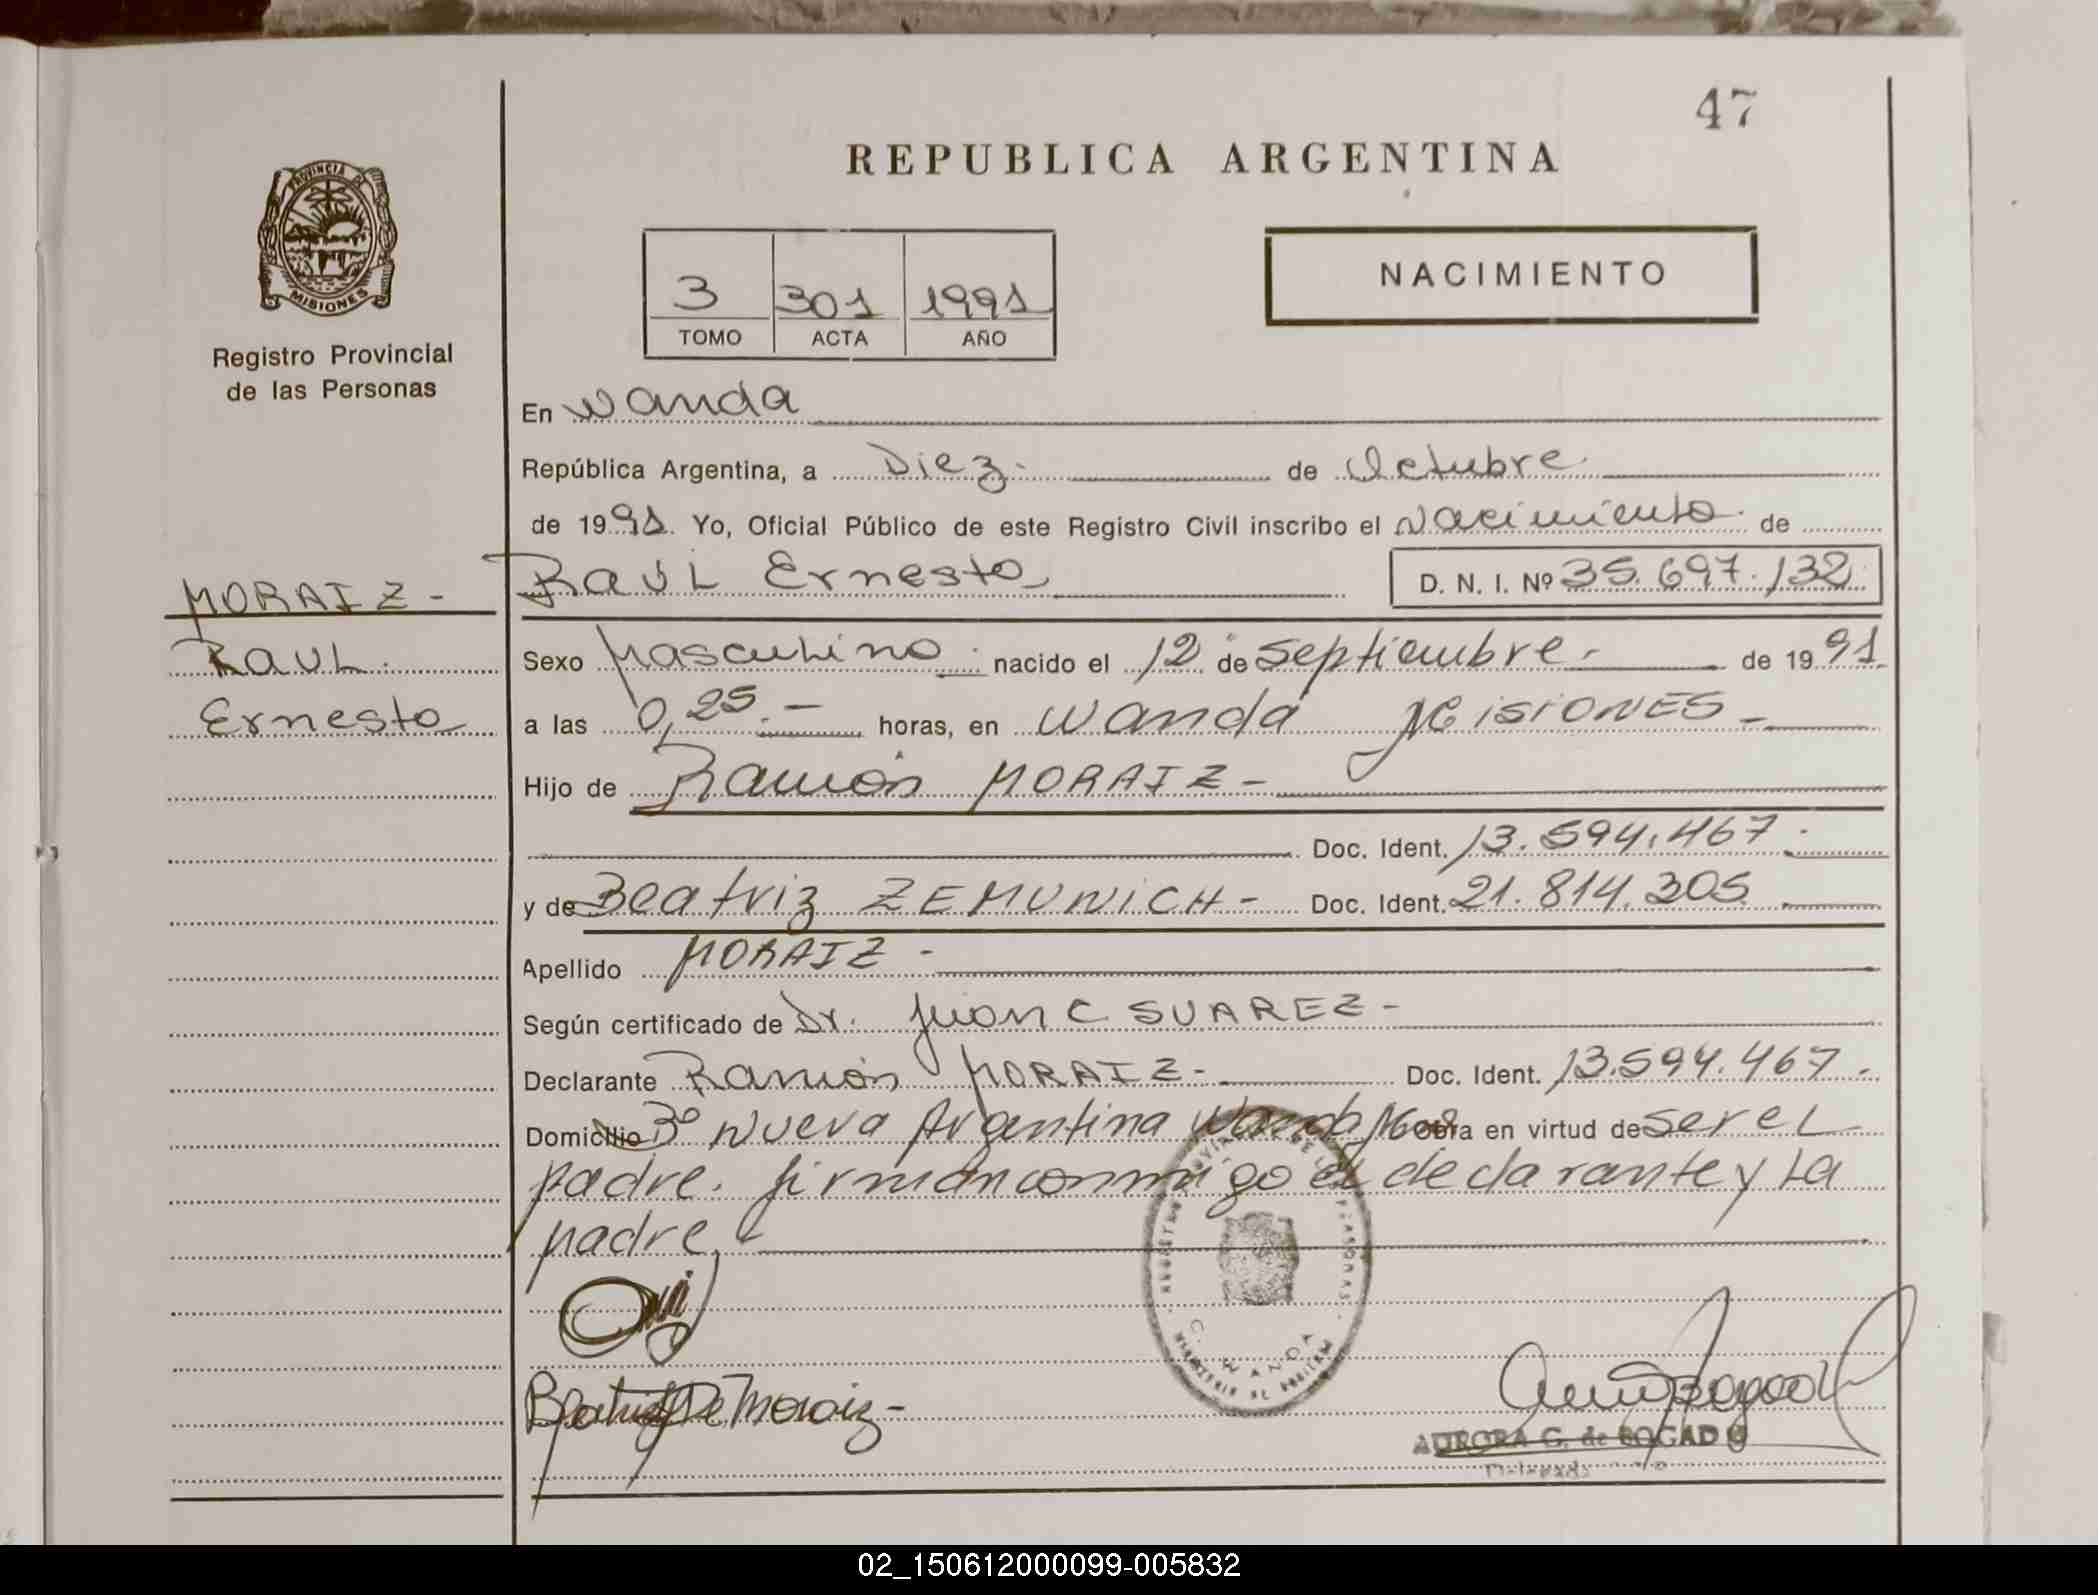 47
REPUBLICA ARGENTINA
PROVINCIA DE
MISIONES
Registro Provincial
de las Personas
3 301 1991
TOMO ACTA AÑO
NACIMIENTO
En Wanda
República Argentina, a Diez.- de Octubre
de 1991. Yo, Oficial Público de este Registro Civil inscribo el Nacimiento de
MORAIZ -
Raúl
Ernesto
Raúl Ernesto D. N. I. Nº 35.697.132
Sexo Masculino. nacido el 12 de Septiembre.- de 1991
a las 0,25.- horas, en Wanda Misiones -
Hijo de Ramón MORAIZ -
Doc. Ident. 13.594.467.
y de Beatriz ZEMUNICH - Doc. Ident. 21.814.305
Apellido MORAIZ -
Según certificado de Dr. Juan C SUAREZ -
Declarante Ramón MORAIZ - Doc. Ident. 13.594.467.-
Domicilio Bº Nueva Argentina Wanda Obra en virtud de ser el
padre. firman conmigo el declarante y la
madre.-
Beatriz De Moraiz-
C. WANDA
AURORA G. de BOGADO
02_150612000099-005832